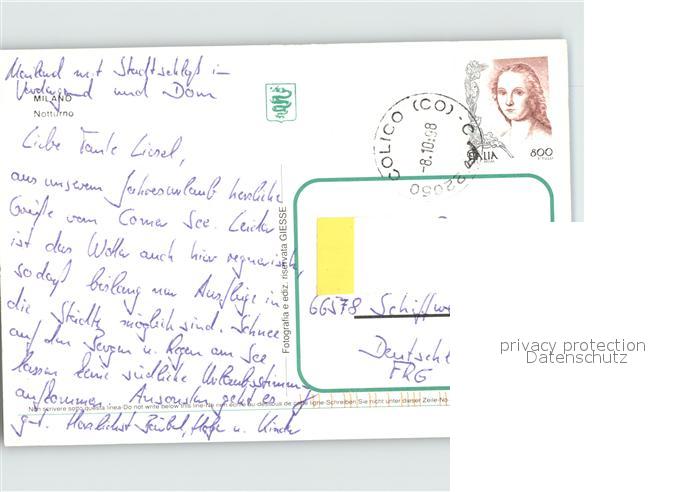 Mailand mit Stadtschloß im
Vordergrund und Dom
MILANO
Notturno
Liebe Tante Liesel,
aus unserem Jahresurlaub herzliche
Grüße vom Comer See. Leider
ist das Wetter auch hier regnerisch,
sodaß bislang nur Ausflüge in
die Städte möglich sind. Schnee
auf den Bergen u. Regen am See
lassen keine südliche Urlaubsstimm-
aufkommen. Ansonsten geht es
gut. Herzlichst Bärbel, u. Kinder
Fotografia e ediz. riservata GIESSE
COLICO (CO)
-8.10.98
ITALIA 800
66578 Schiffw
Deutsche
FRG
Non scrivere sotto questa linea-Do not write below this line-Ne rien écrire au-dessous de cette ligne-Schreiben Sie nicht unter dieser Zeile-No
privacy protection
Datenschutz